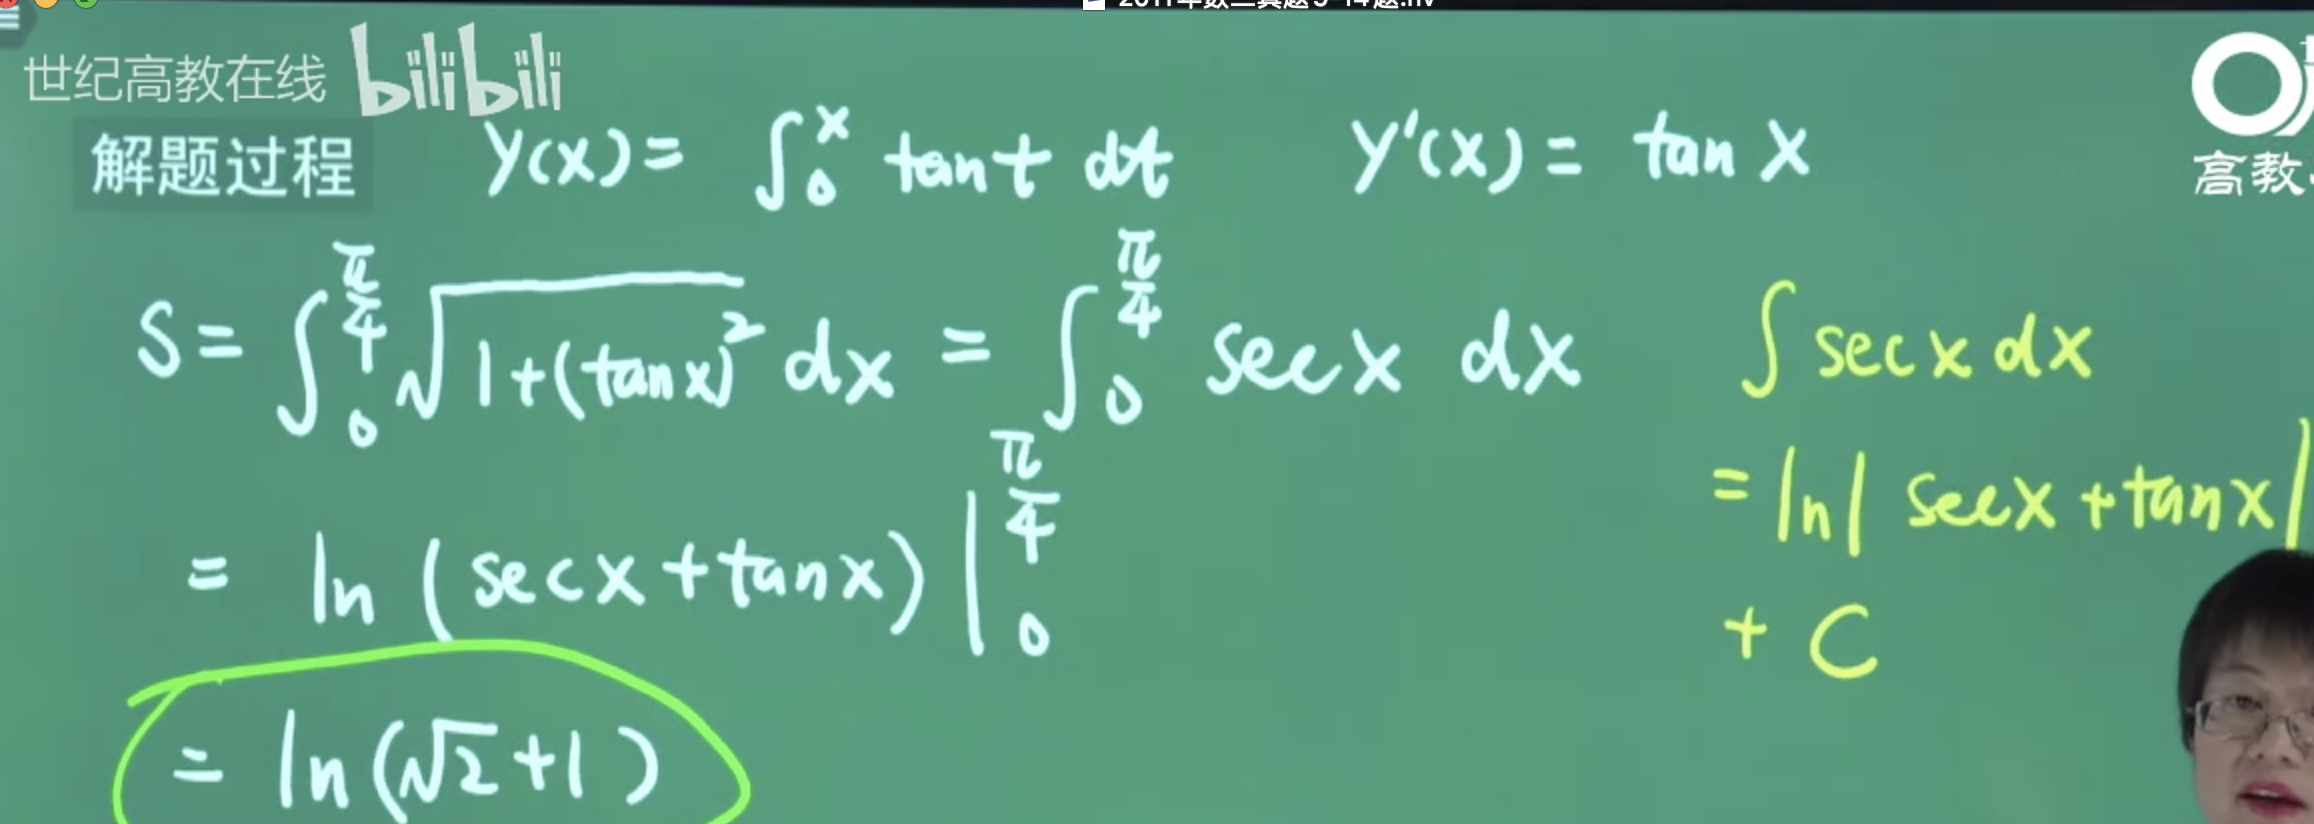 世纪高教在线 bilibili
解题过程 y(x) = ∫₀ˣ tan t dt y'(x) = tan x
高教
S = ∫₀^{π/4} √(1+(tan x)²) dx = ∫₀^{π/4} sec x dx
= ln (sec x + tan x) |₀^{π/4}
= ln(√2+1)
∫ sec x dx
= ln| sec x + tan x|
+ C